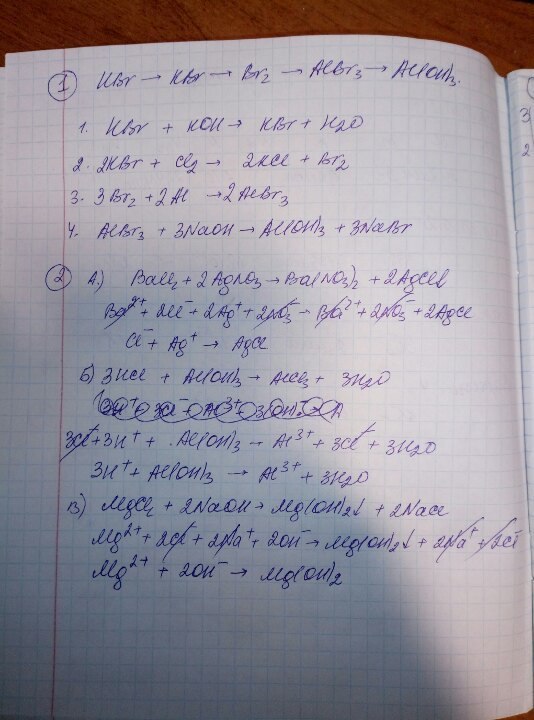 1 HBr → KBr → Br₂ → AlBr₃ → Al(OH)₃
1. HBr + KOH → KBr + H₂O
2. 2KBr + Cl₂ → 2KCl + Br₂
3. 3Br₂ + 2Al → 2AlBr₃
4. AlBr₃ + 3NaOH → Al(OH)₃ + 3NaBr
2 А) BaCl₂ + 2AgNO₃ → Ba(NO₃)₂ + 2AgCl↓
Ba²⁺ + 2Cl⁻ + 2Ag⁺ + 2NO₃⁻ → Ba²⁺ + 2NO₃⁻ + 2AgCl
Cl⁻ + Ag⁺ → AgCl
Б) 3HCl + Al(OH)₃ → AlCl₃ + 3H₂O
3Cl⁻ + 3H⁺ + Al(OH)₃ → Al³⁺ + 3Cl⁻ + 3H₂O
3H⁺ + Al(OH)₃ → Al³⁺ + 3H₂O
В) MgCl₂ + 2NaOH → Mg(OH)₂↓ + 2NaCl
Mg²⁺ + 2Cl⁻ + 2Na⁺ + 2OH⁻ → Mg(OH)₂↓ + 2Na⁺ + 2Cl⁻
Mg²⁺ + 2OH⁻ → Mg(OH)₂
3
2